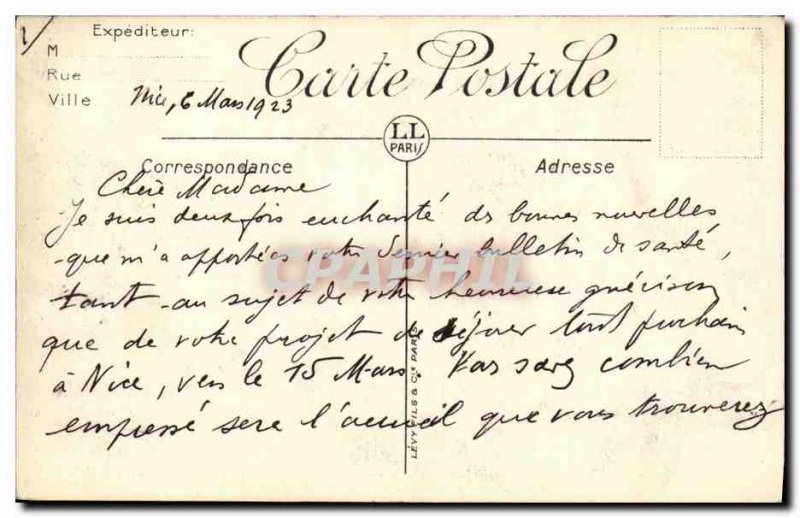 Expéditeur:
M
Rue
Ville
Carte Postale
Nice, 6 Mars 1923
LL
PARIS
Correspondance
Adresse
Chère Madame
Je suis deux fois enchanté des bonnes nouvelles
que m'a apportées votre dernier bulletin de santé,
tant au sujet de votre heureuse guérison
que de votre projet de séjour tout prochain
à Nice, vers le 15 Mars. Vous savez combien
empressé sera l'accueil que vous trouverez
LÉVY FILS & Cie PARIS
CPARHIL